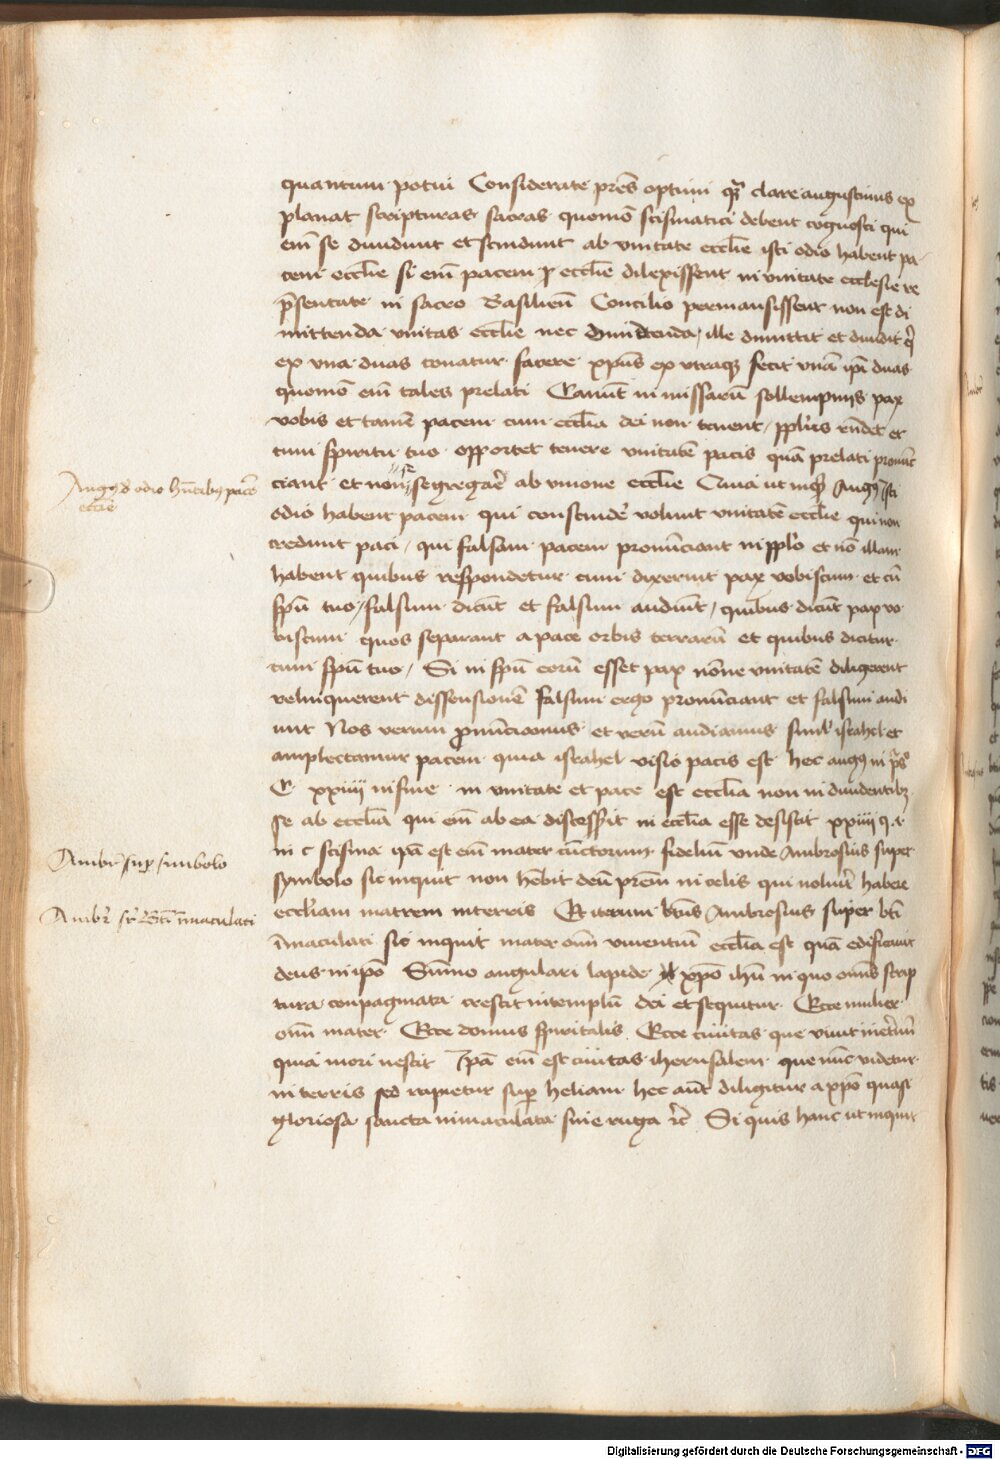 quantum potui Considerate pres̄ optimi qr̄ clare augustinus ex
planat scripturas sacras quomō scismatici debent cognosci qui
eni̅ se diuidunt et scindunt ab vnitate eccl̅ie isti odio habent pa-
cem eccl̅ie si eni̅ pacem eccl̅ie dilexissent in vnitate ecclesie re
p̅sentate in sacro Basilien̅ Concilio permansissent non est di
mittenda vnitas eccl̅ie nec ille dimittit et diuidit q̅
ex vna duas conatur facere xp̅us ex vtraqꝫ fecit vnā ip̅i duas
quomō eni̅ tales prelati Canūt in missarū sollempnijs pax
vobis et tamē pacem cum eccl̅ia dei non tenent, ppl̅us rn̅det et
cum spiritu tuo opportet tenere vnitatē pacis quā prelati pronūc
ciant et non segregare ab vnione eccl̅ie Cum ut inqt Augꝰ isti
odio habent pacem qui conscinde̅ volunt vnitatē eccl̅ie qui non
credunt paci, qui falsam pacem pronūciant in ppl̅o et nō illam
habent quibus respondetur cum dixerint pax vobiscum et cū
spū tuo, falsum dicūt et falsum audiūt, quibus dicūt pax vo
biscum quos separant a pace orbis terrarū et quibus dicitur
cum spū tuo, Si in spū eorū esset pax nōne vnitatē diligerent
relinquerent dissensionē falsum ergo pronūciant et falsum audi
unt Nos verum pronūciamus et verū audiamus simꝰ israhel et
amplectamur pacem quia israhel visio pacis est hec augꝰ in ps̅
C xxiiii in fine in vnitate et pace est eccl̅ia non in diuidentibꝫ
se ab eccl̅ia qui eni̅ ab ea discessit in eccl̅ia esse desistit xxiiii q. i
in c scisma ip̅a est eni̅ mater cūctorum fideliū vnde Ambrosius super
symbolo sic inquit non he̅bit deū pre̅m in celis qui noluit̅ habere
eccl̅iam matrem in terris Et iterum bt̅us Ambrosius super bt̅i
ī̅maculati sic inquit mater om̅ viuentiū eccl̅ia est quā edificauit
deus in ip̅o Sūmo angulari lapide xp̅o ihū in quo om̅is scrip
tura conpaginata crescit in templū dei et sequitur Ecce mulier
om̅ mater Ecce domus sp̅iritalis Ecce ciuitas que viuit in et̅nū
quia mori nescit Ip̅a eni̅ est ciuitas iherusalem que nūc videtur
in terris sed rapietur sup̅ heliam hec aūt diligitur a xp̅o quasi
gloriosa sancta inmaculata sine ruga rc̅ Si quis hanc ut inquit
Augꝰ d̅ odio hn̅tibꝰ pace̅
eccl̅ie
Ambr̅ sup̅ simbolo
Ambr̅ sr̅ Bt̅i ī̅maculati
Digitalisierung gefördert durch die Deutsche Forschungsgemeinschaft - DFG